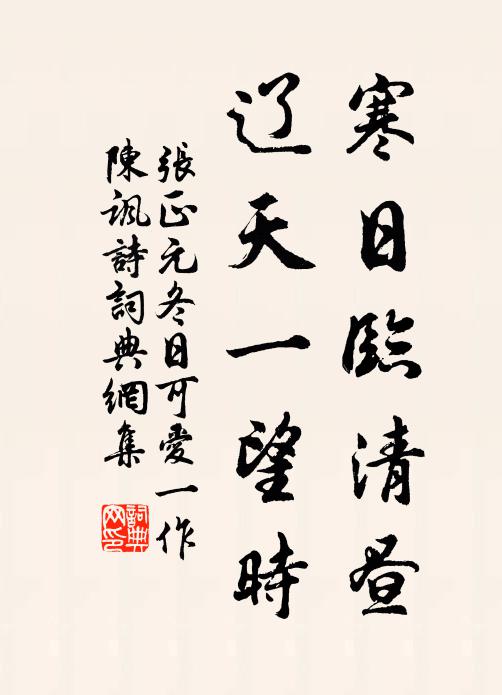 寒日臨清昼
辽天一望時
張正元冬日可愛一作
陳諷詩詞典網集
詞典
网印